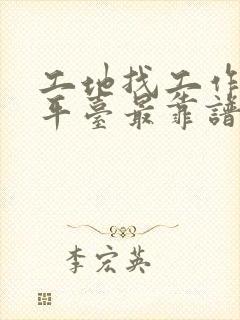 工地找工作
平台最靠譜
李宏英